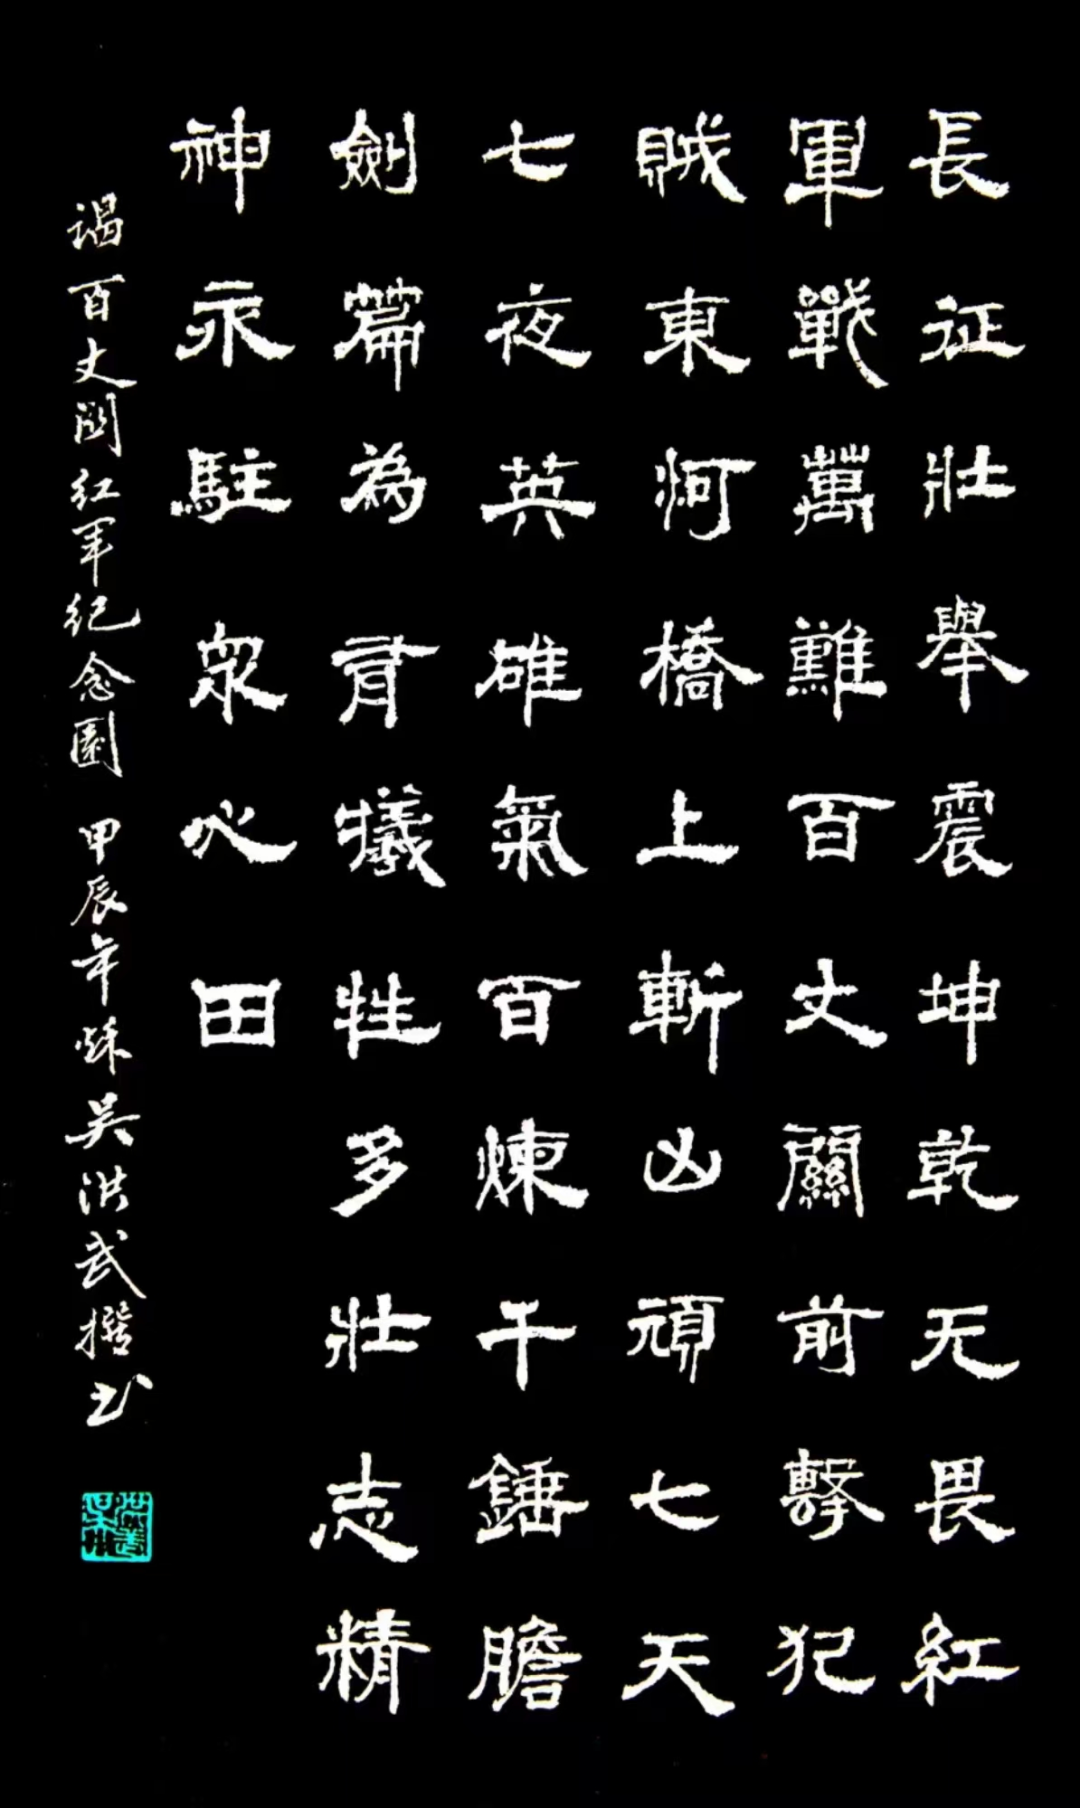 長征壯舉震坤乾无畏紅
軍戰萬難百丈關前擊犯
賊東河橋上斬凶頑七天
七夜英雄氣百煉千錘膽
劍篇為有犧牲多壯志精
神永駐眾心田
谒百丈関红军纪念園 甲辰年秌吴洪武撰书